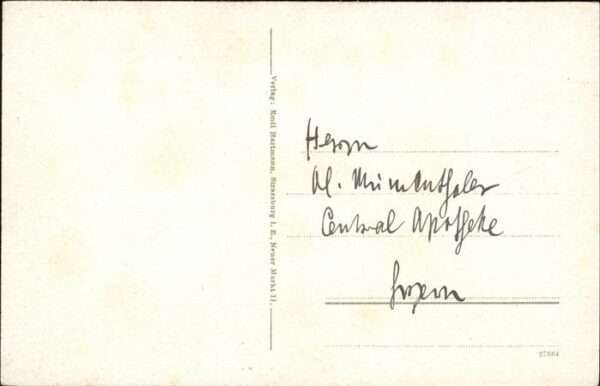 Verlag: Emil Hartmann, Strassburg i. E., Neuer Markt 11.
Herrn
Al. Mumenthaler
Central Apotheke
Luzern